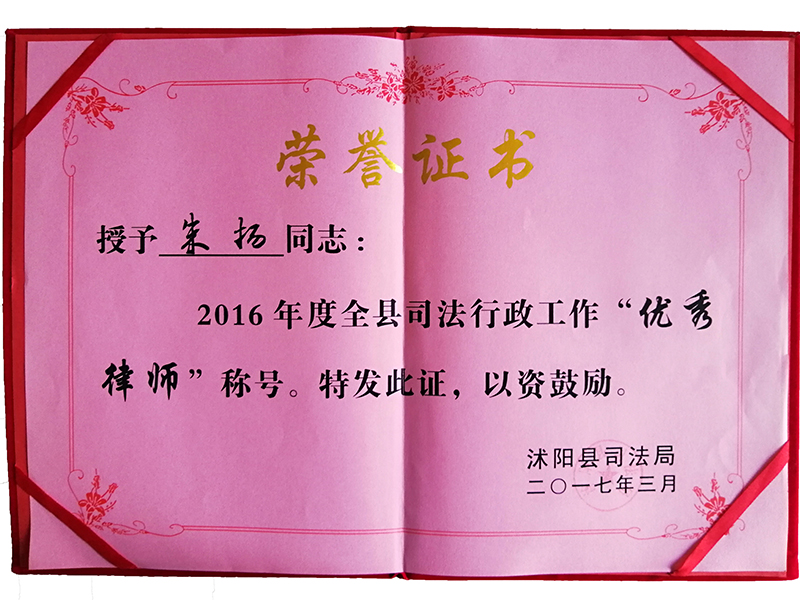 荣誉证书
授予朱扬同志：
2016年度全县司法行政工作“优秀
律师”称号。特发此证，以资鼓励。
沭阳县司法局
二〇一七年三月